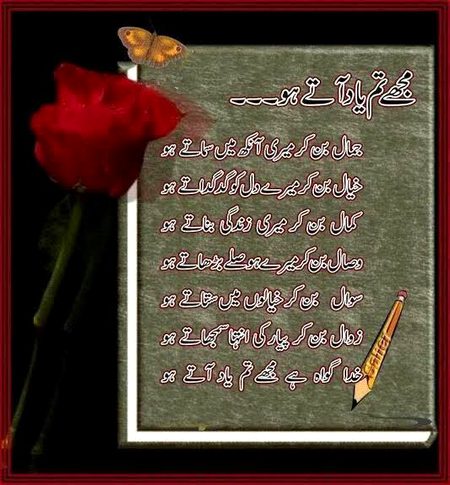 مجھے تم یاد آتے ہو۔۔۔
جمال بن کر میری آنکھ میں سماتے ہو
خیال بن کر میرے دل کو گدگداتے ہو
کمال بن کر میری زندگی بناتے ہو
وصال بن کر میرے حوصلے بڑھاتے ہو
سوال بن کر خیالوں میں ستاتے ہو
زوال بن کر پیار کی انتہا سمجھاتے ہو
خدا گواہ ہے مجھے تم یاد آتے ہو